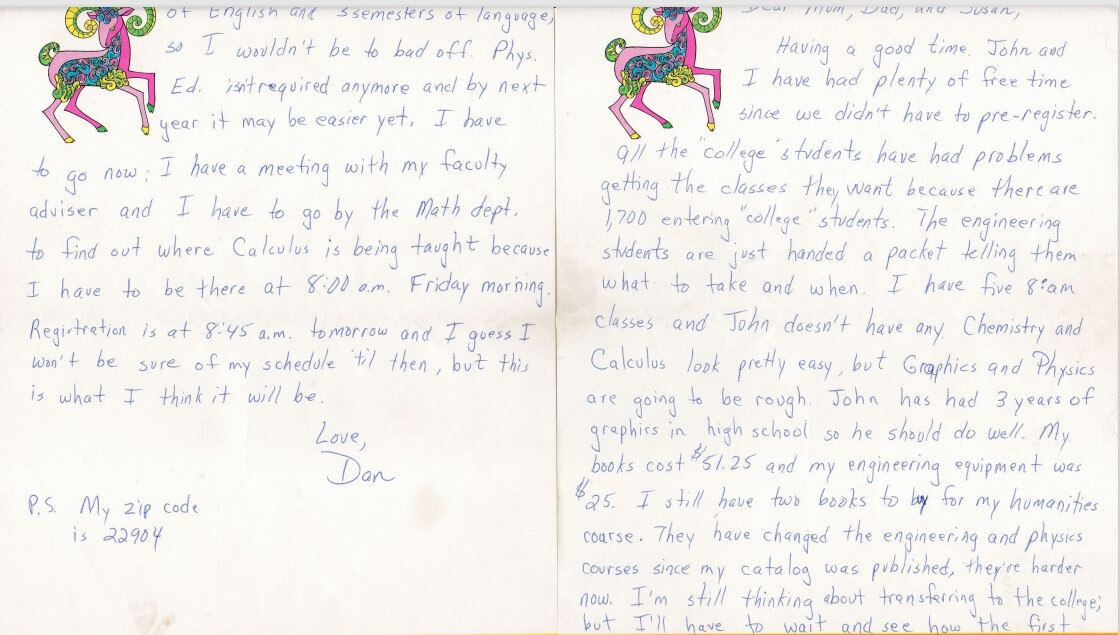 of English and 3 semesters of language,
so I wouldn't be to bad off. Phys.
Ed. isn't required anymore and by next
year it may be easier yet. I have
to go now; I have a meeting with my faculty
adviser and I have to go by the Math dept.
to find out where Calculus is being taught because
I have to be there at 8:00 a.m. Friday morning.
Registration is at 8:45 a.m. tomorrow and I guess I
won't be sure of my schedule 'til then, but this
is what I think it will be.
Love,
Dan
P.S. My zip code
is 22904
Dear Mom, Dad, and Susan,
Having a good time. John and
I have had plenty of free time
since we didn't have to pre-register.
All the "college" students have had problems
getting the classes they want because there are
1,700 entering "college" students. The engineering
students are just handed a packet telling them
what to take and when. I have five 8:am
classes and John doesn't have any. Chemistry and
Calculus look pretty easy, but Graphics and Physics
are going to be rough. John has had 3 years of
graphics in high school so he should do well. My
books cost $51.25 and my engineering equipment was
$25. I still have two books to by for my humanities
course. They have changed the engineering and physics
courses since my catalog was published, they're harder
now. I'm still thinking about transferring to the college;
but I'll have to wait and see how the first